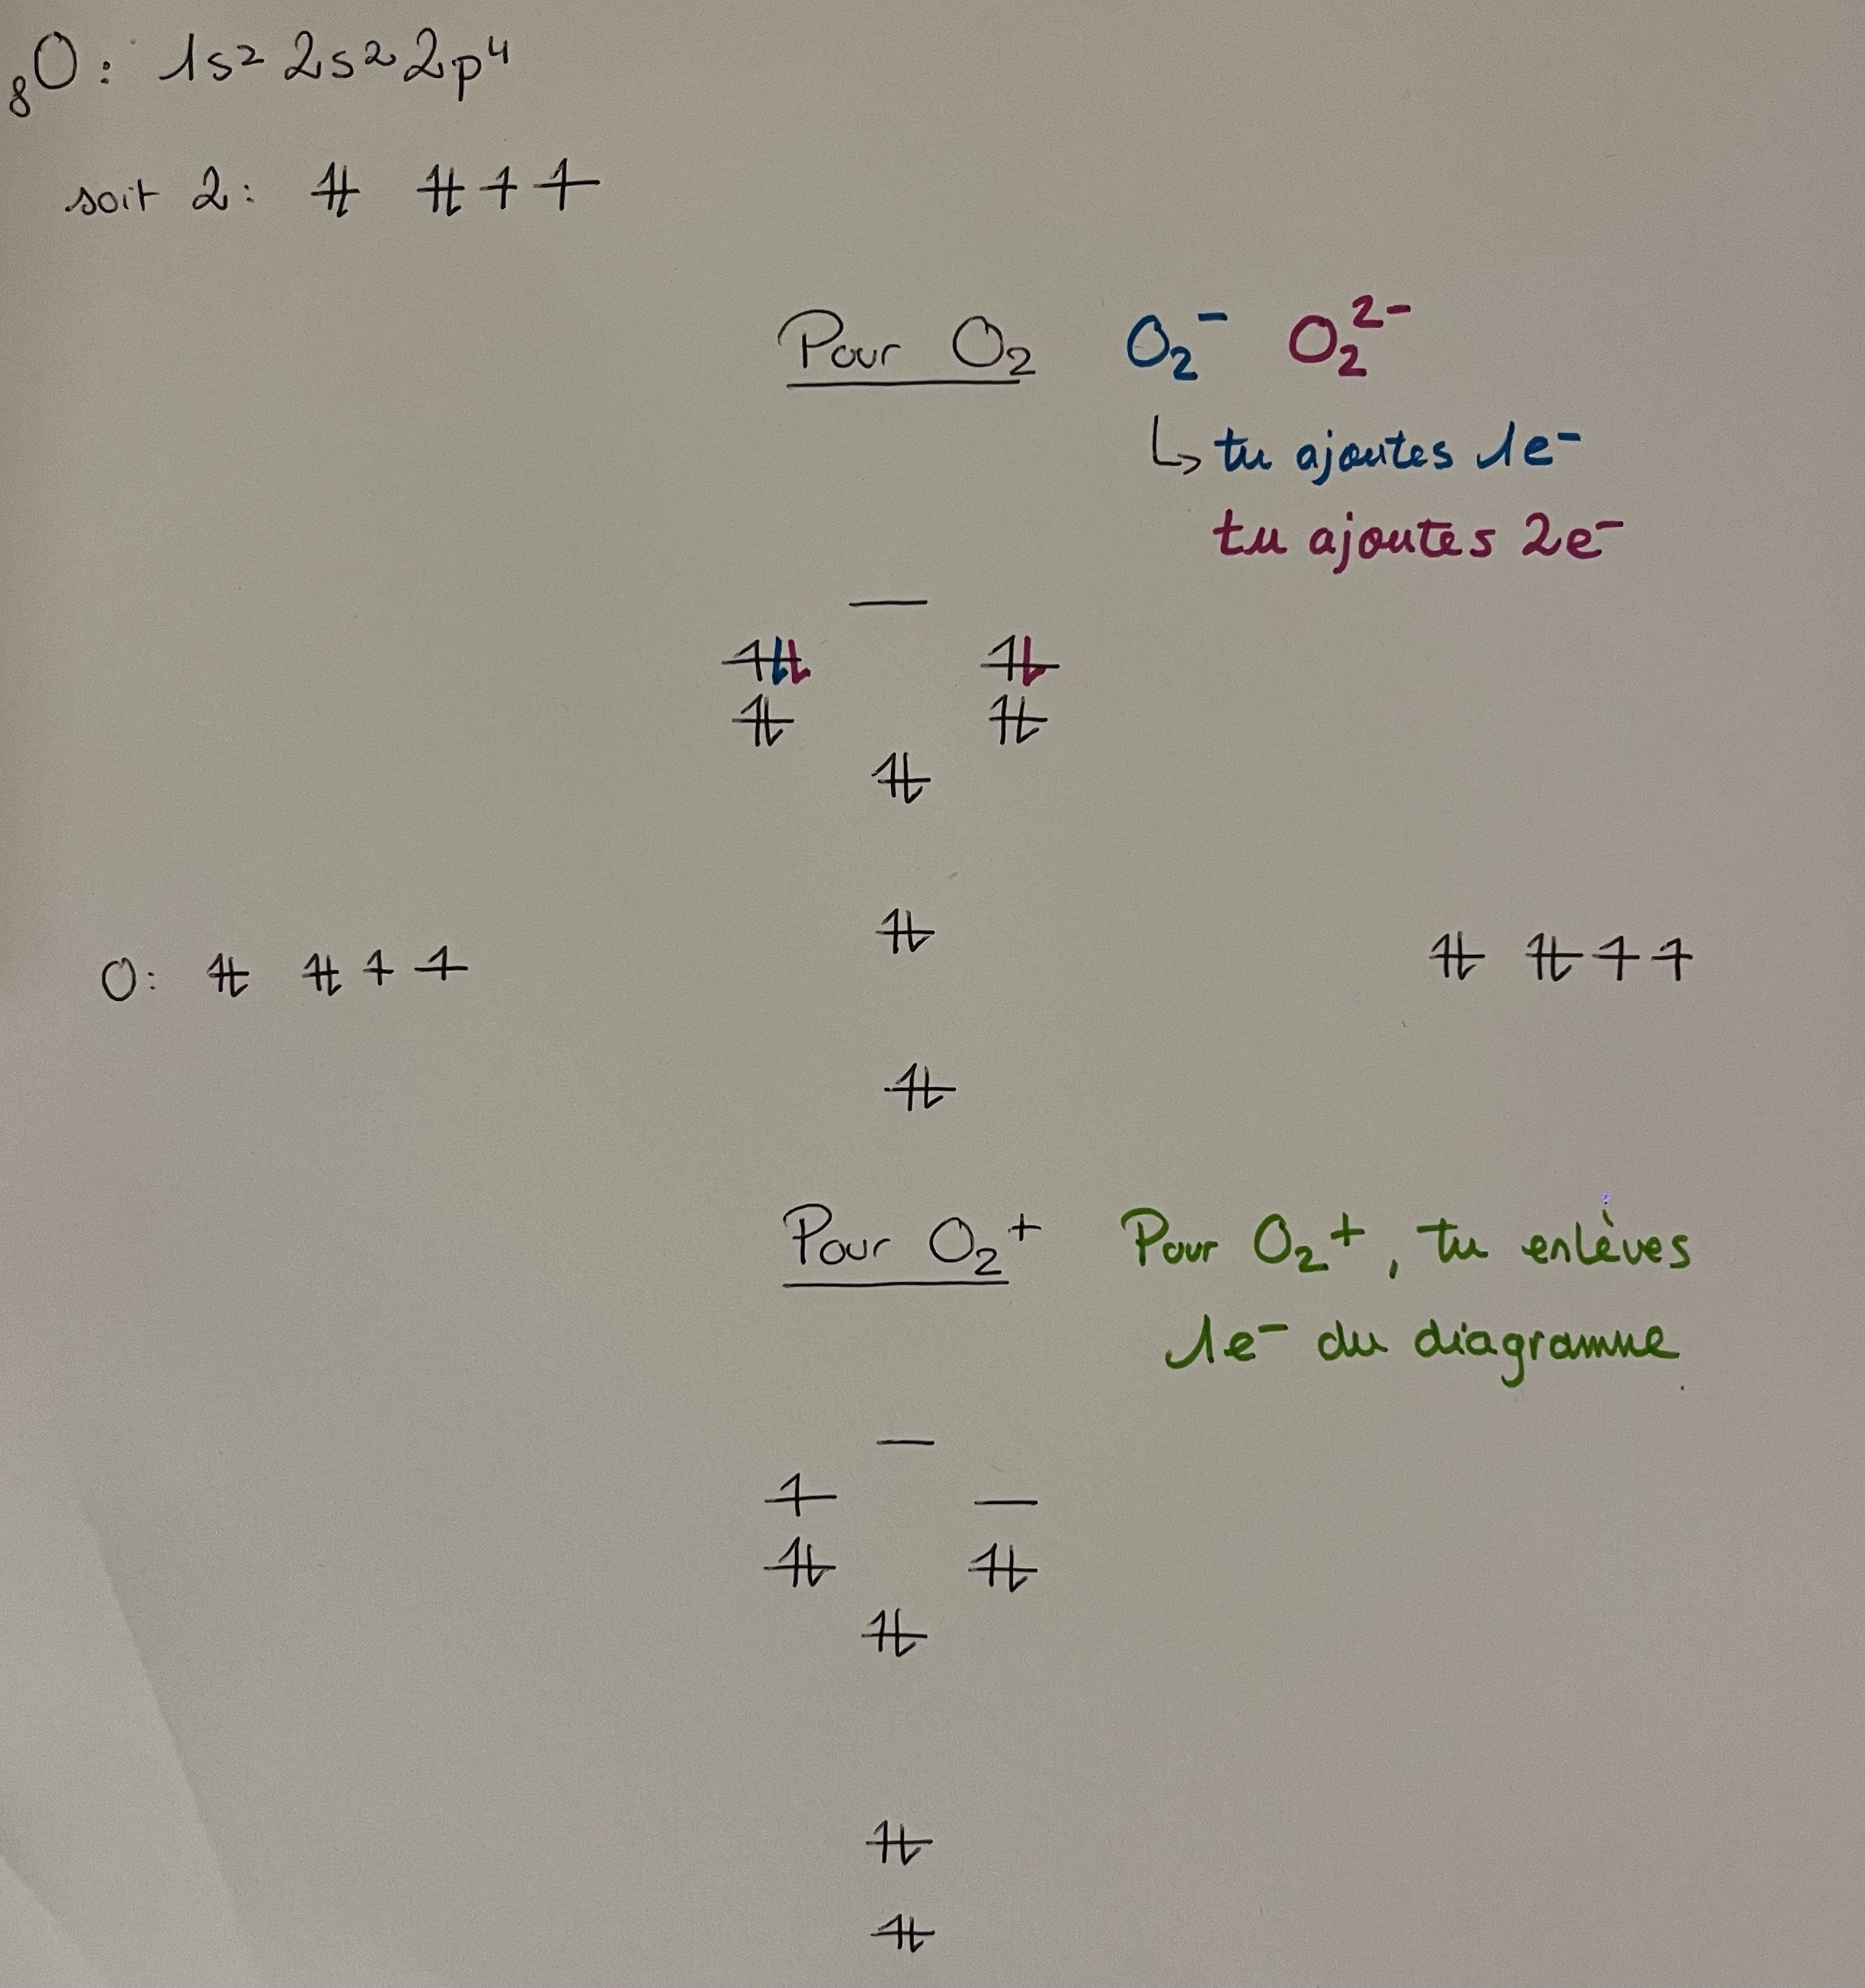 ₈O : 1s² 2s² 2p⁴
soit 2 : ⥮ ⥮ ↿ ↿
Pour O₂ O₂⁻ O₂²⁻
↳ tu ajoutes 1e⁻
tu ajoutes 2e⁻
O : ⥮ ⥮ ↿ ↿ ⥮ ⥮ ↿ ↿
Pour O₂⁺ Pour O₂⁺, tu enlèves
1e⁻ du diagramme